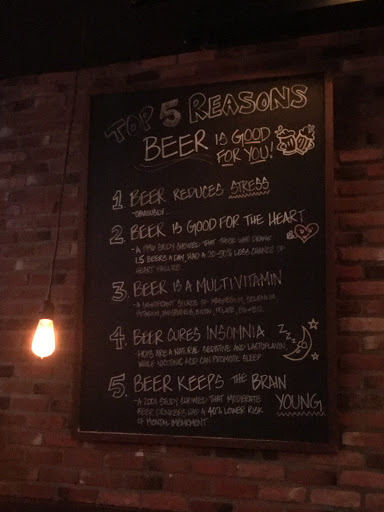 TOP 5 REASONS
BEER IS GOOD
FOR YOU!
1 BEER REDUCES STRESS
- OBVIOUSLY...
2 BEER IS GOOD FOR THE HEART
- A 1999 STUDY SHOWED THAT THOSE WHO DRANK
1.5 BEERS A DAY, HAD A 20-50% LESS CHANCE OF
HEART FAILURE
3. BEER IS A MULTIVITAMIN
- A SIGNIFICANT SOURCE OF MAGNESIUM, SELENIUM,
POTASSIUM, PHOSPHORUS, BIOTIN, FOLATE,
4. BEER CURES INSOMNIA
- HOPS ARE A NATURAL SEDATIVE AND LACTOFLAVIN
WHILE NICOTINIC ACID CAN PROMOTE SLEEP
Z Z Z
5. BEER KEEPS THE BRAIN
YOUNG
- A 2001 STUDY SHOWED THAT MODERATE
BEER DRINKERS HAD A 40% LOWER RISK
OF MENTAL IMPAIRMENT